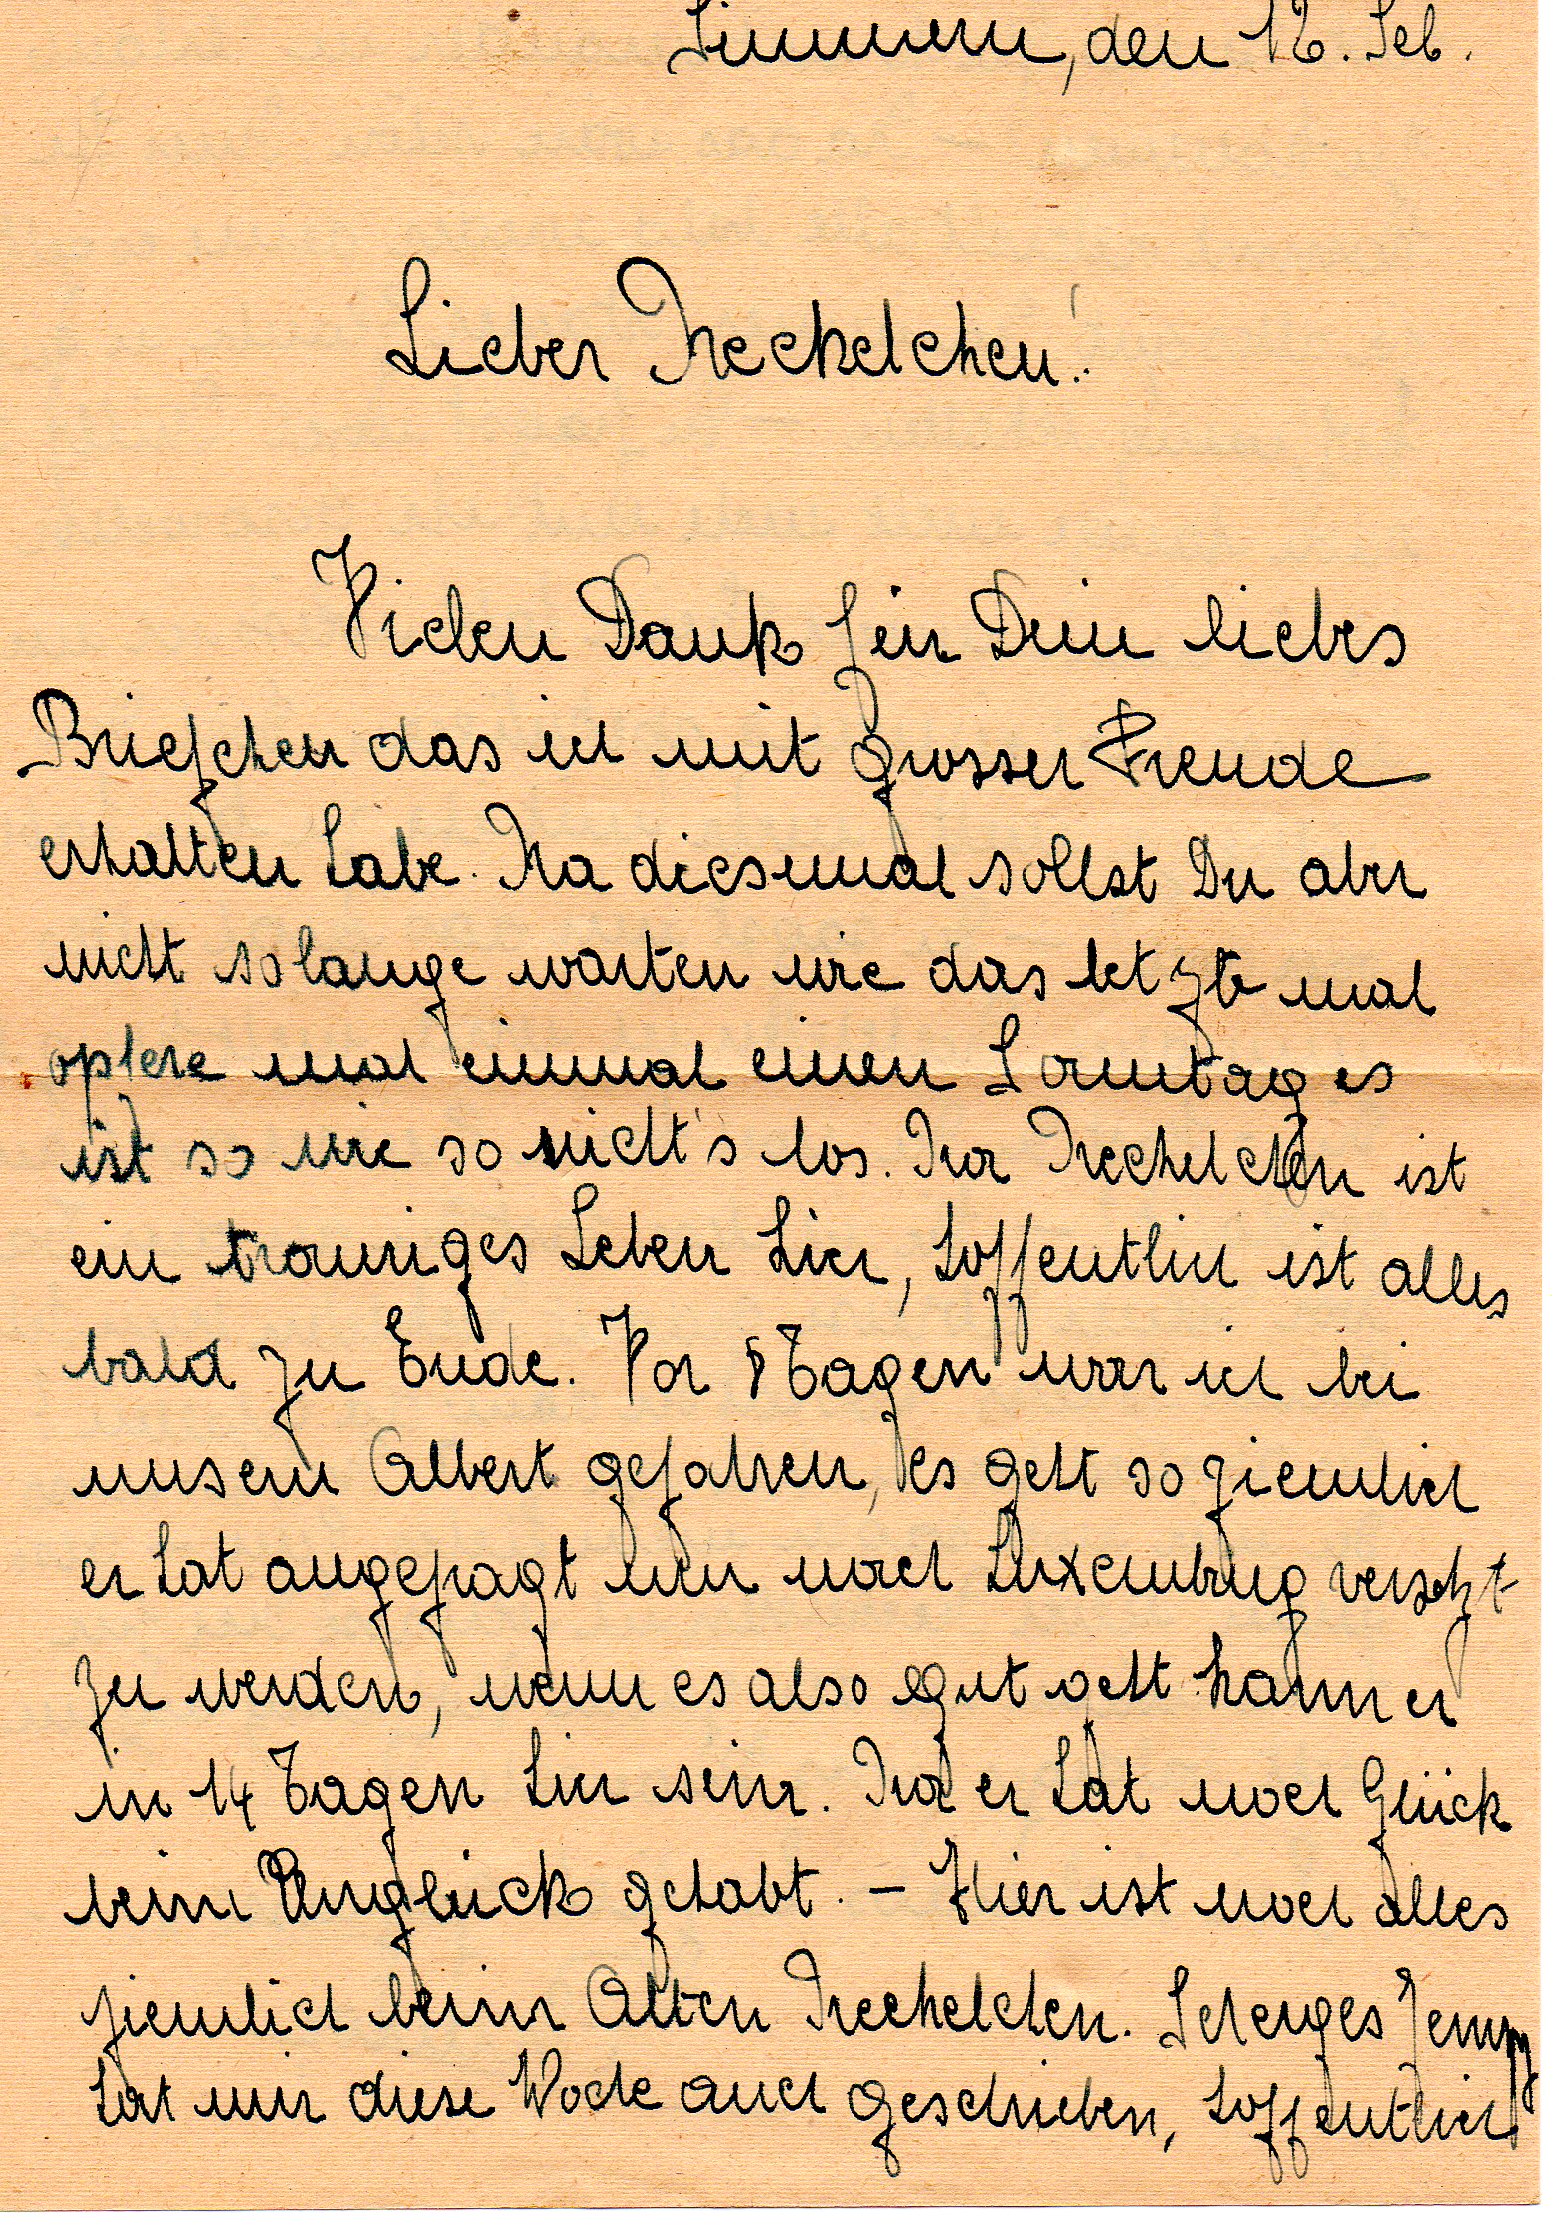 Simmern, den 12. Feb.
Lieber Neckelchen!
Vielen Dank für Dein liebes
Briefchen das ich mit grosser Freude
erhalten habe. Na diesmal sollst Du aber
nicht solange warten wie das letzte mal
opfere mal einmal einen Sonntag es
ist so wie so nicht's los. Na Neckelchen ist
ein trauriges Leben hier, hoffentlich ist alles
bald zu Ende. Vor 8 Tagen war ich bei
unserm Albert gefahren, es geht so ziemlich
er hat angefragt um nach Luxemburg versetzt
zu werden, wenn es also gut geht kann er
in 14 Tagen hier sein. Na er hat noch Glück
beim Unglück gehabt. – Hier ist noch alles
ziemlich beim Alten Neckelchen. Scherges Jemp
hat mir diese Woche auch geschrieben, hoffentlich